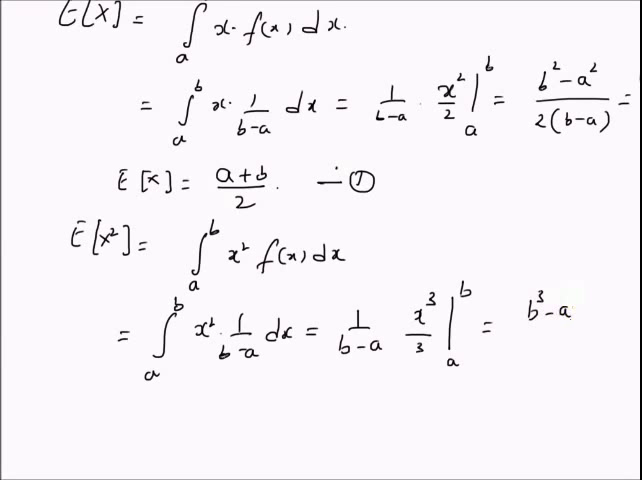 E[X] = ∫ₐ x·f(x) dx.
= ∫ₐᵇ x· 1/(b-a) dx = 1/(b-a) · x²/2 |ₐᵇ = (b²-a²)/(2(b-a)) =
E[x] = (a+b)/2. — ①
E[x²] = ∫ₐᵇ x² f(x) dx
= ∫ₐᵇ x²· 1/(b-a) dx = 1/(b-a) x³/3 |ₐᵇ = b³-a